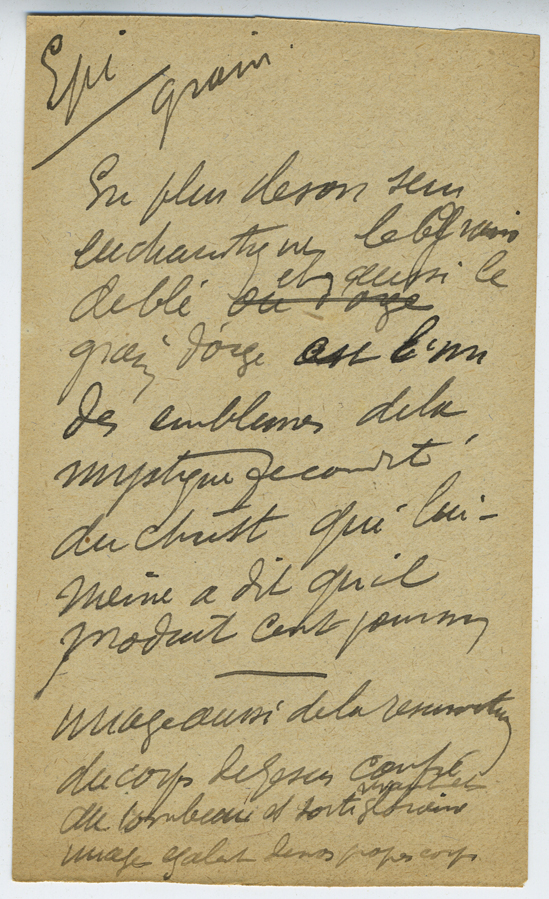 Epi / grain
En plus de son sens
eucharistique, le Grain
de blé ou d'orge et aussi le
grain d'orge est l'un
des emblemes de la
mystique fecondité
du Christ qui lui-
meme a dit qu'il
produit cent pour un
image aussi de la resurrection
du corps de Jesus confié
au tombeau et sorti glorieux
image egalemt de nos propres corps